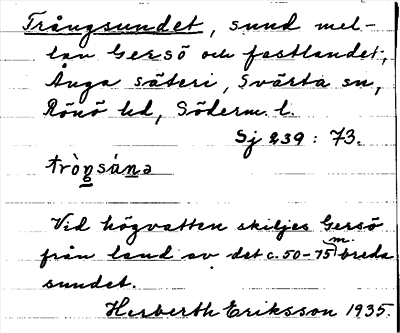 Trångsundet, sund mel-
lan Gersö och fastlandet,
Ånga säteri, Svärta sn,
Rönö hd, Söderm. l.
Sj 239 : 73.
tròŋsúnə
Vid högvatten skiljes Gersö
från land av det c. 50-75 m. breda
sundet.
Herberth Eriksson 1935.